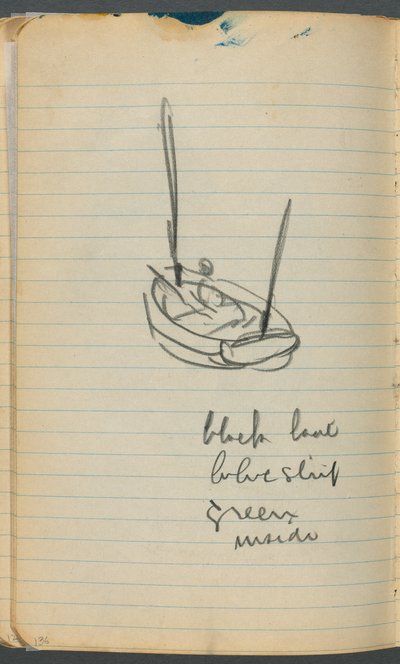 black boat
blue strip
green
inside
136